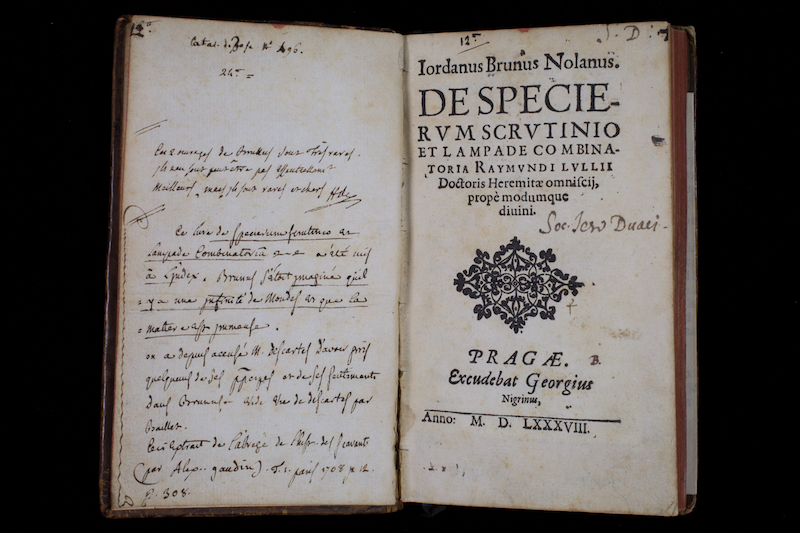 12.
Catal. d. Bose N° 496.
24.
Ces ouvrages de Brunus sont très rares.
ils ne sont peut être pas essentiellement
meilleurs, mais ils sont rares et chers
Ce livre de Specierum scrutinio et
lampade Combinatoria a été mis
à l'Index. Brunus s'étoit imaginé qu'il
y a une infinité de Mondes et que la
matiere est immense.
on a depuis accusé M. descartes D'avoir pris
quelqu'uns de ses principes et de ses sentiments
dans Brunus. vide vie de descartes par
Baillet.
Ceci Extrait de l'abregé de l'hist. des Scavants
(par Alex. gaudin). T. 1. paris 1708 in 12
p. 308.
12.
S. D.
Iordanus Brunus Nolanus.
DE SPECIE-
RVM SCRVTINIO
ET LAMPADE COMBINA-
TORIA RAYMVNDI LVLLII
Doctoris Heremitæ omniscij,
propè modumque
diuini.
Soc. Jesu Duaci.
PRAGÆ. B.
Excudebat Georgius
Nigrinus,
Anno: M. D. LXXXVIII.